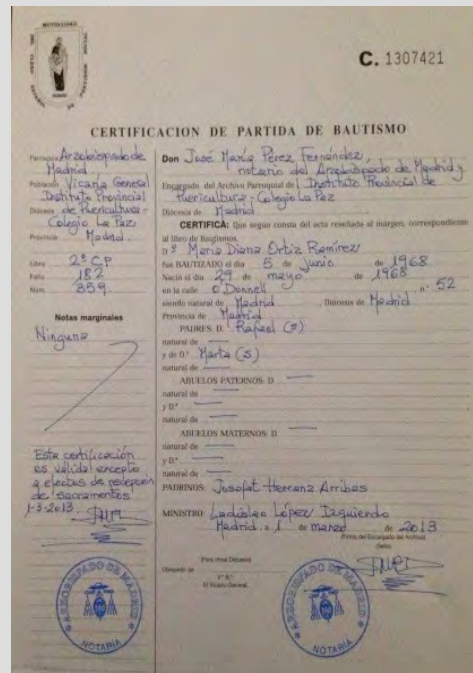 C. 1307421
CERTIFICACION DE PARTIDA DE BAUTISMO
Parroquia Arzobispado de
Madrid.
Población Vicaría General
Instituto Provincial
Diócesis de Puericultura-
Colegio La Paz
Provincia Madrid.
Libro 2º CP
Folio 182
Núm. 359
Notas marginales
Ninguna
Esta certificación
es válida excepto
a efectos de recepción
de sacramentos
1-3-2013
Don José María Pérez Fernández,
notario del Arzobispado de Madrid y
Encargado del Archivo Parroquial de Instituto Provincial de
Puericultura-Colegio La Paz
Diócesis de Madrid
CERTIFICA: Que según consta del acta reseñada al margen, correspondiente
al libro de Bautismos,
Maria Diana Ortiz Ramírez
fue BAUTIZADO el día 5 de Junio de 1968
Nació el día 29 de mayo de 1968
en la calle O'Donnell nº 52
siendo natural de Madrid, Diócesis de Madrid
Provincia de Madrid
PADRES: D. Rafael (s)
natural de
y de D.ª Marta (s)
natural de
ABUELOS PATERNOS: D.
natural de
y D.ª
natural de
ABUELOS MATERNOS: D.
natural de
y D.ª
natural de
PADRINOS: Josafat Herranz Arribas
MINISTRO: Ladislao López Izquierdo
Madrid, a 1 de marzo de 2013
(Firma del Encargado del Archivo)
(Sello)
Para otras Diócesis
Obispado de
V.º B.º
El Vicario General,
ARZOBISPADO DE MADRID
NOTARIA
ARZOBISPADO DE MADRID
NOTARIA